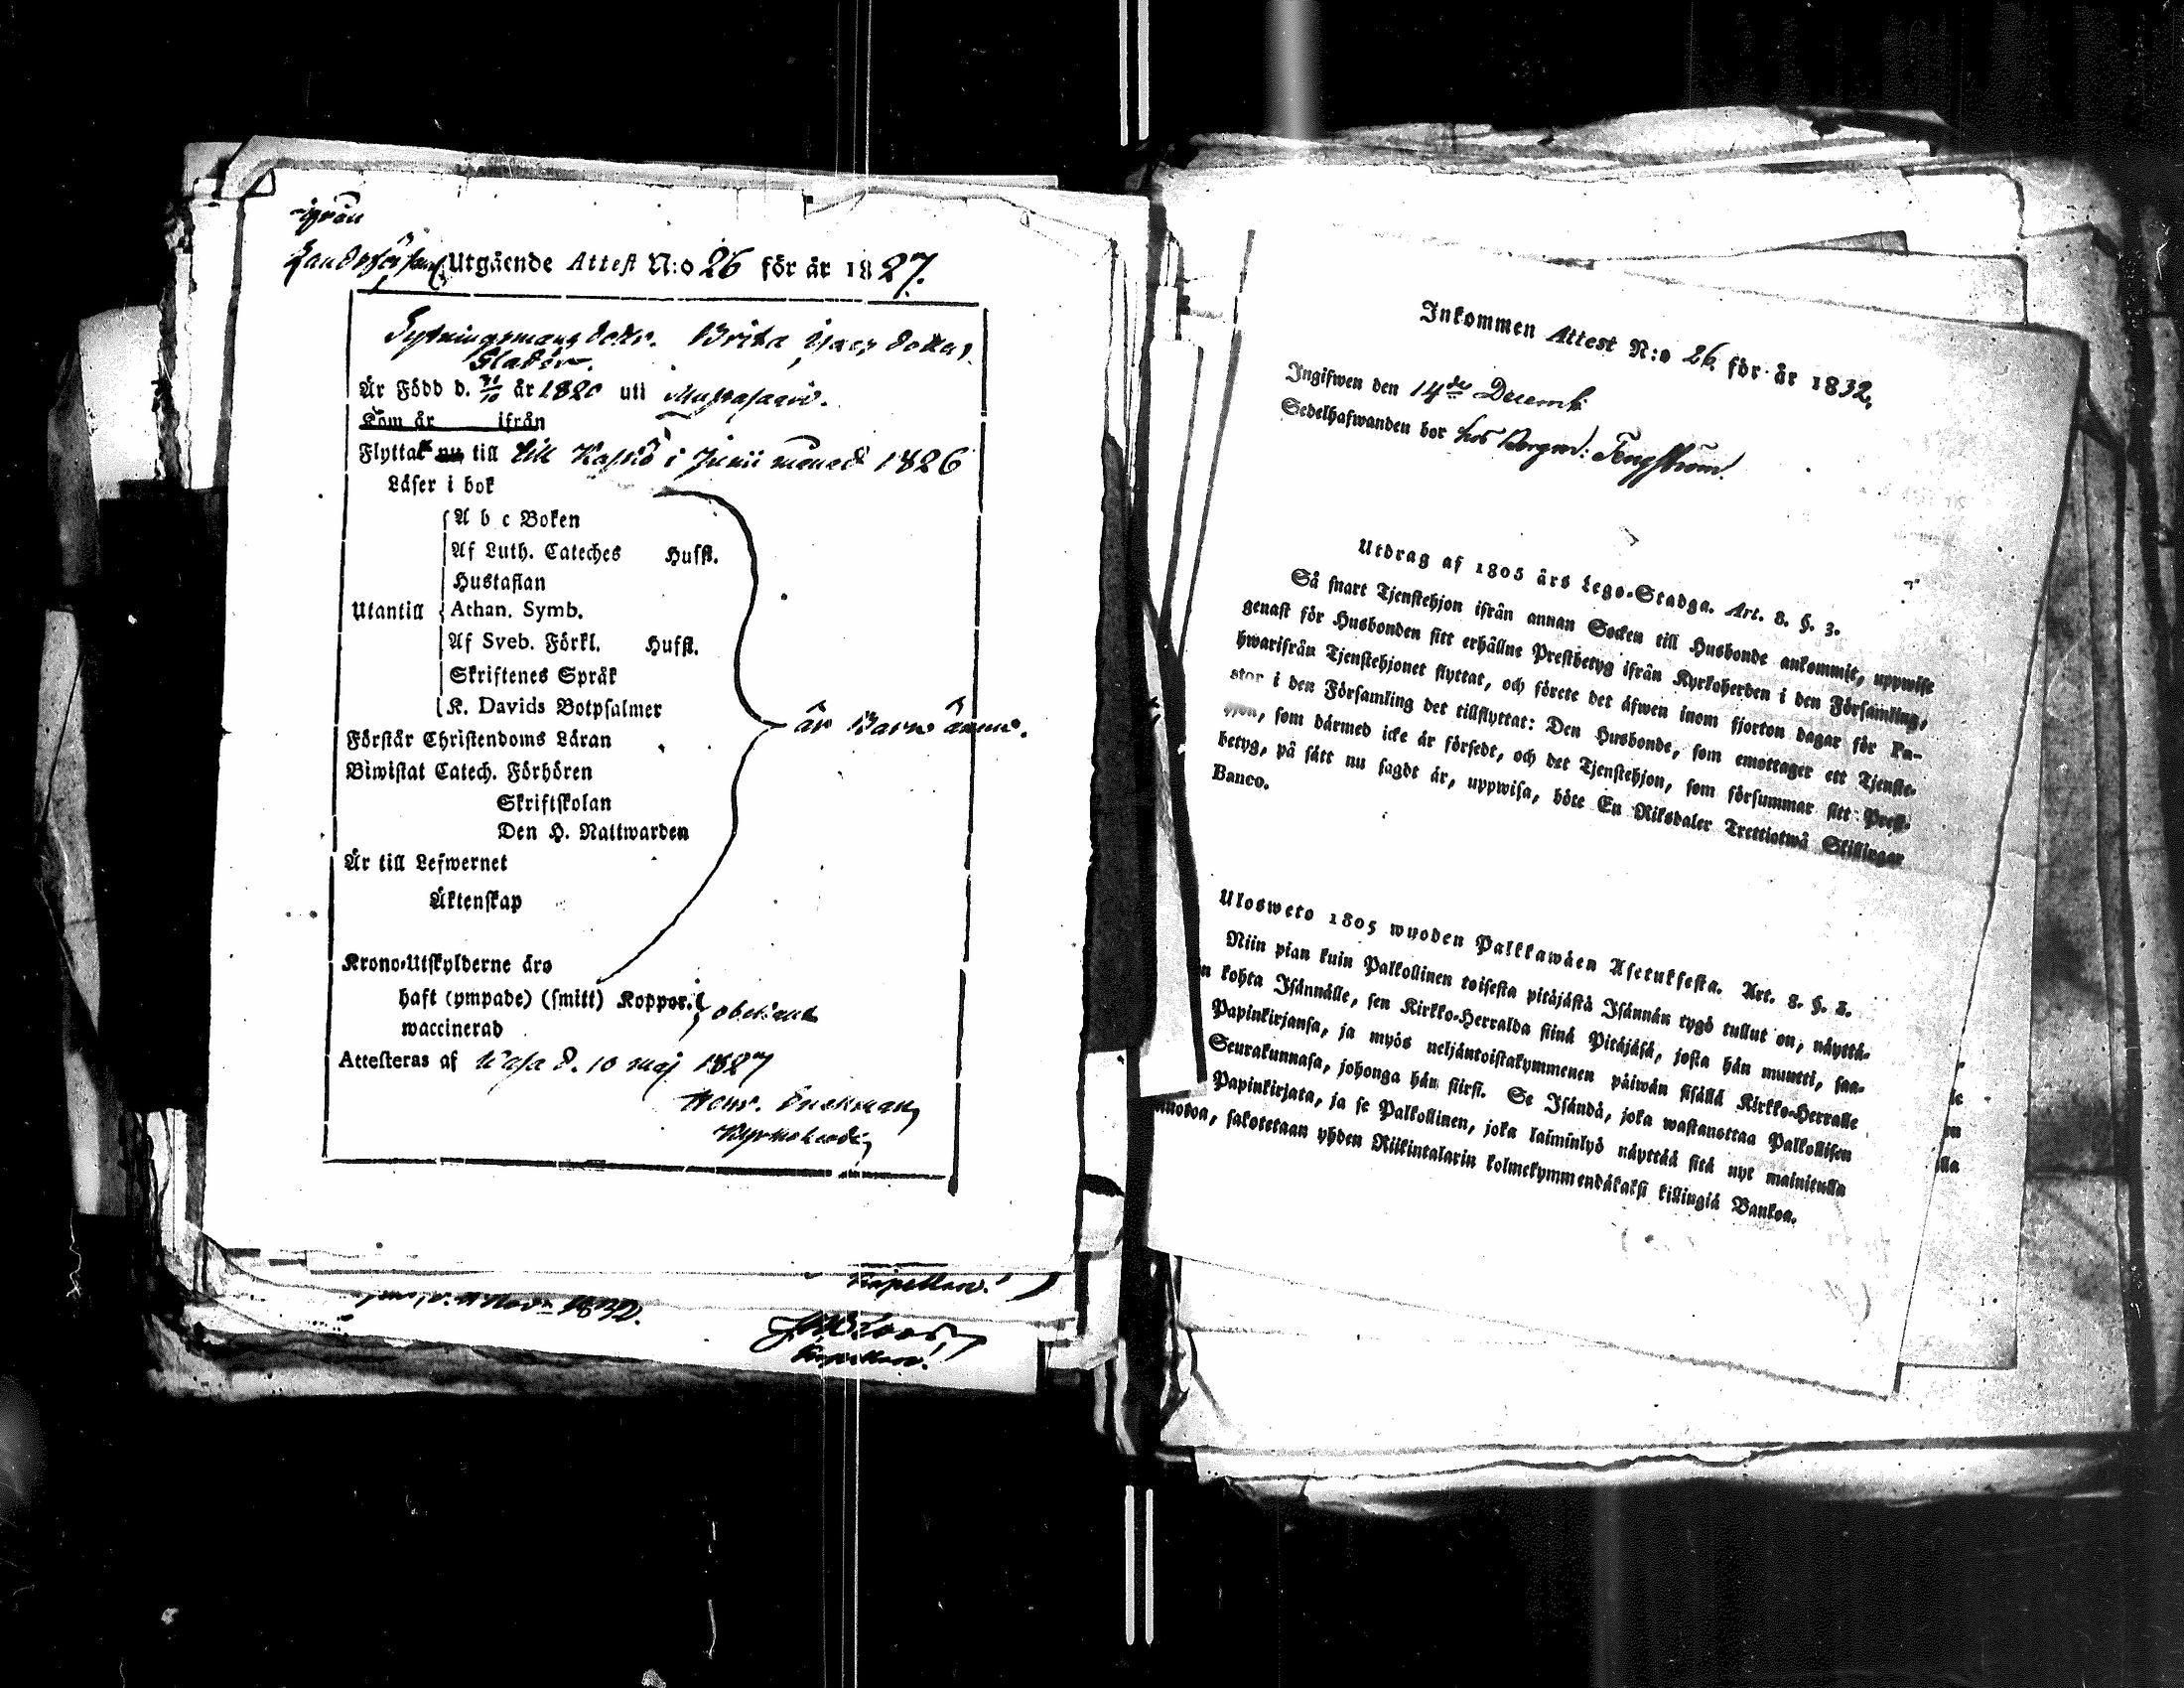 ifrån
Utgående Attest N:o 26 för år 1827.
Sytningsmans dottr. Brita
Är Född d. 31/10 år 1820 uti
Kom år ifrån
Flyttat nu till till Kaskö i Junii månad 1826
Läser i bok
A b c Boken
Af Luth. Cateches Hufst.
Hustaflan
Utantill Athan. Symb.
Af Sveb. Förkl. Hufst.
Skriftenes Språk
K. Davids Botpsalmer
är Barn ännu.
Förstår Christendoms Läran
Biwistat Catech. Förhören
Skriftskolan
Den H. Nattwarden
Är till Lefwernet
Äktenskap
Krono-Utskylderne äro
haft (ympade) (smitt) Koppor.
waccinerad
obekant
Attesteras af Wasa d. 10 maj 1827
Kyrkoherde
Novr 1832.
Kapellan.
Kapellan.
Inkommen Attest N:o 26. för år 1832.
Ingifwen den 14de Decemb.
Sedelhafwanden bor hos Borgm: Tengström.
Utdrag af 1805 års Lego-Stadga. Art. 8. §. 3.
Så snart Tjenstehjon ifrån annan Socken till Husbonde ankommit, uppwise
genast för Husbonden sitt erhållne Prestbetyg ifrån Kyrkoherden i den Församling,
hwarifrån Tjenstehjonet flyttat, och förete det äfwen inom fjorton dagar för Pa-
stor i den Församling det tillflyttat: Den Husbonde, som emottager ett Tjenste-
hjon, som därmed icke är försedt, och det Tjenstehjon, som försummar sitt Prest-
betyg, på sätt nu sagdt är, uppwisa, böte En Riksdaler Trettiotwå Skillingar
Banco.
Ulosweto 1805 wuoden Palkkawäen Asetuksesta. Art. 8. §. 3.
Niin pian kuin Palkollinen toisesta pitäjästä Isännän tygö tullut on, näyttä-
n kohta Isännälle, sen Kirkko-Herralda siinä Pitäjäsä, josta hän muutti, saa-
Papinkirjansa, ja myös neljäntoistakymmenen päiwän sisällä Kirkko-Herralle
Seurakunnasa, johonga hän siirsi. Se Isändä, joka wastanottaa Palkollisen
Papinkirjata, ja se Palkollinen, joka laiminlyö näyttää sitä nyt mainitulla
muotoa, sakotetaan yhden Riikintalarin kolmekymmendäkaksi killingiä Bankoa.